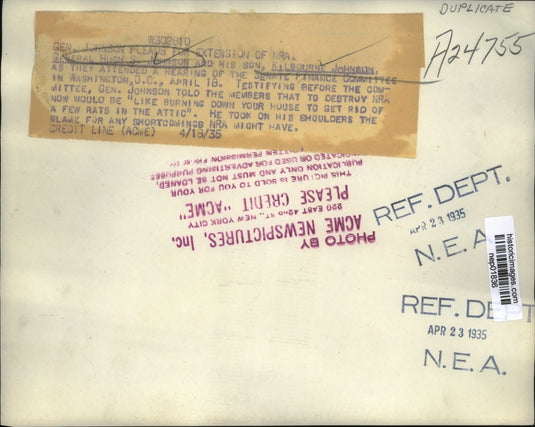 DUPLICATE
A24755
W302810
GEN. JOHNSON PLEADS FOR EXTENSION OF NRA.
GENERAL HUGH S. JOHNSON AND HIS SON, KILBOURNE JOHNSON,
AS THEY ATTENDED A HEARING OF THE SENATE FINANCE COMMITTEE
IN WASHINGTON,D.C., APRIL 18. TESTIFYING BEFORE THE COM-
MITTEE, GEN. JOHNSON TOLD THE MEMBERS THAT TO DESTROY NRA
NOW WOULD BE "LIKE BURNING DOWN YOUR HOUSE TO GET RID OF
A FEW RATS IN THE ATTIC". HE TOOK ON HIS SHOULDERS THE
BLAME FOR ANY SHORTSOMINGS NRA MIGHT HAVE.
CREDIT LINE (ACME) 4/18/35
PHOTO BY
ACME NEWSPICTURES, Inc.
220 EAST 42nd ST., NEW YORK CITY
PLEASE CREDIT "ACME"
THIS PICTURE IS SOLD TO YOU FOR YOUR
PUBLICATION ONLY AND MUST NOT BE LOANED,
SYNDICATED OR USED FOR ADVERTISING PURPOSES
WRITTEN PERMISSION
REF. DEPT.
APR 23 1935
N.E.A.
historicimages.com
nep01836
REF. DEPT
APR 23 1935
N.E.A.